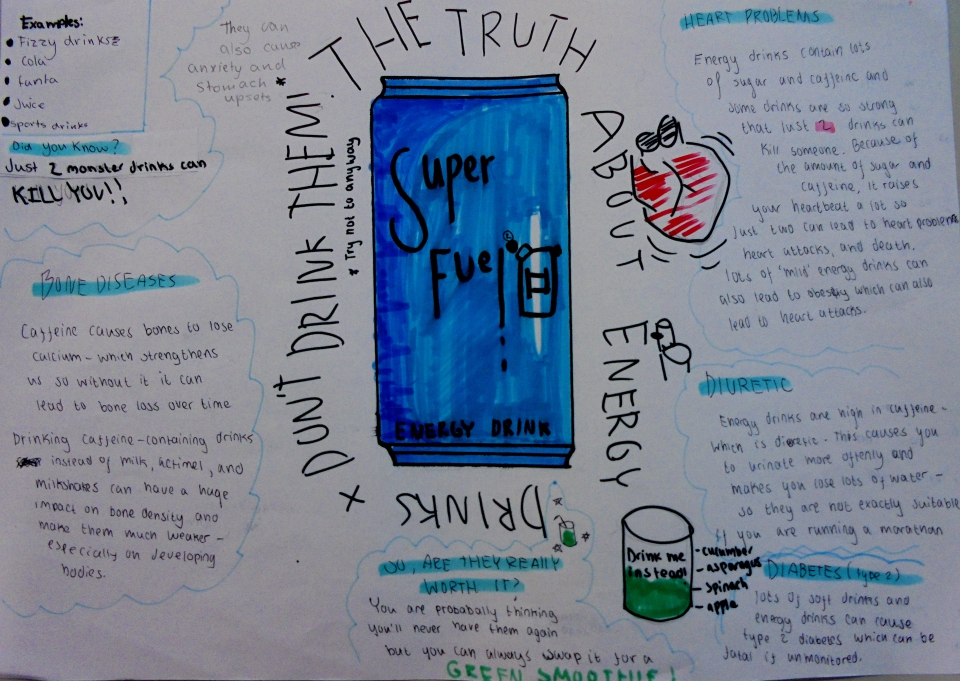 Examples:
Fizzy drinks
cola
fanta
Juice
sports drinks
Did you Know?
Just 2 monster drinks can
KILL YOU!!
They can
also cause
anxiety and
stomach
upsets *
THE TRUTH
ABOUT
ENERGY
DRINKS
x DON'T DRINK THEM!
* Try not to anyway
Super
Fuel
ENERGY DRINK
HEART PROBLEMS
Energy drinks contain lots
of sugar and caffeine and
some drinks are so strong
that just 2 drinks can
kill someone. Because of
the amount of sugar and
caffeine, it raises
your heartbeat a lot so
Just two can lead to heart problems
heart attacks, and death.
lots of 'mild' energy drinks can
also lead to obesity which can also
lead to heart attacks.
BONE DISEASES
Caffeine causes bones to lose
calcium - which strengthens
us so without it it can
lead to bone loss over time
Drinking caffeine-containing drinks
instead of milk, actimel, and
milkshakes can have a huge
impact on bone density and
make them much weaker -
especially on developing
bodies.
DIURETIC
Energy drinks are high in caffeine -
which is diuretic - This causes you
to urinate more oftenly and
makes you lose lots of water -
so they are not exactly suitable
if you are running a marathan
Drink me
instead!
- cucumber
- asparagus
- spinach
- apple
DIABETES (type 2)
lots of soft drinks and
energy drinks can cause
type 2 diabetes which can be
fatal if unmonitored.
SO, ARE THEY REALLY
WORTH IT?
You are probabally thinking
you'll never have them again
but you can always swap it for a
GREEN SMOOTHIE!